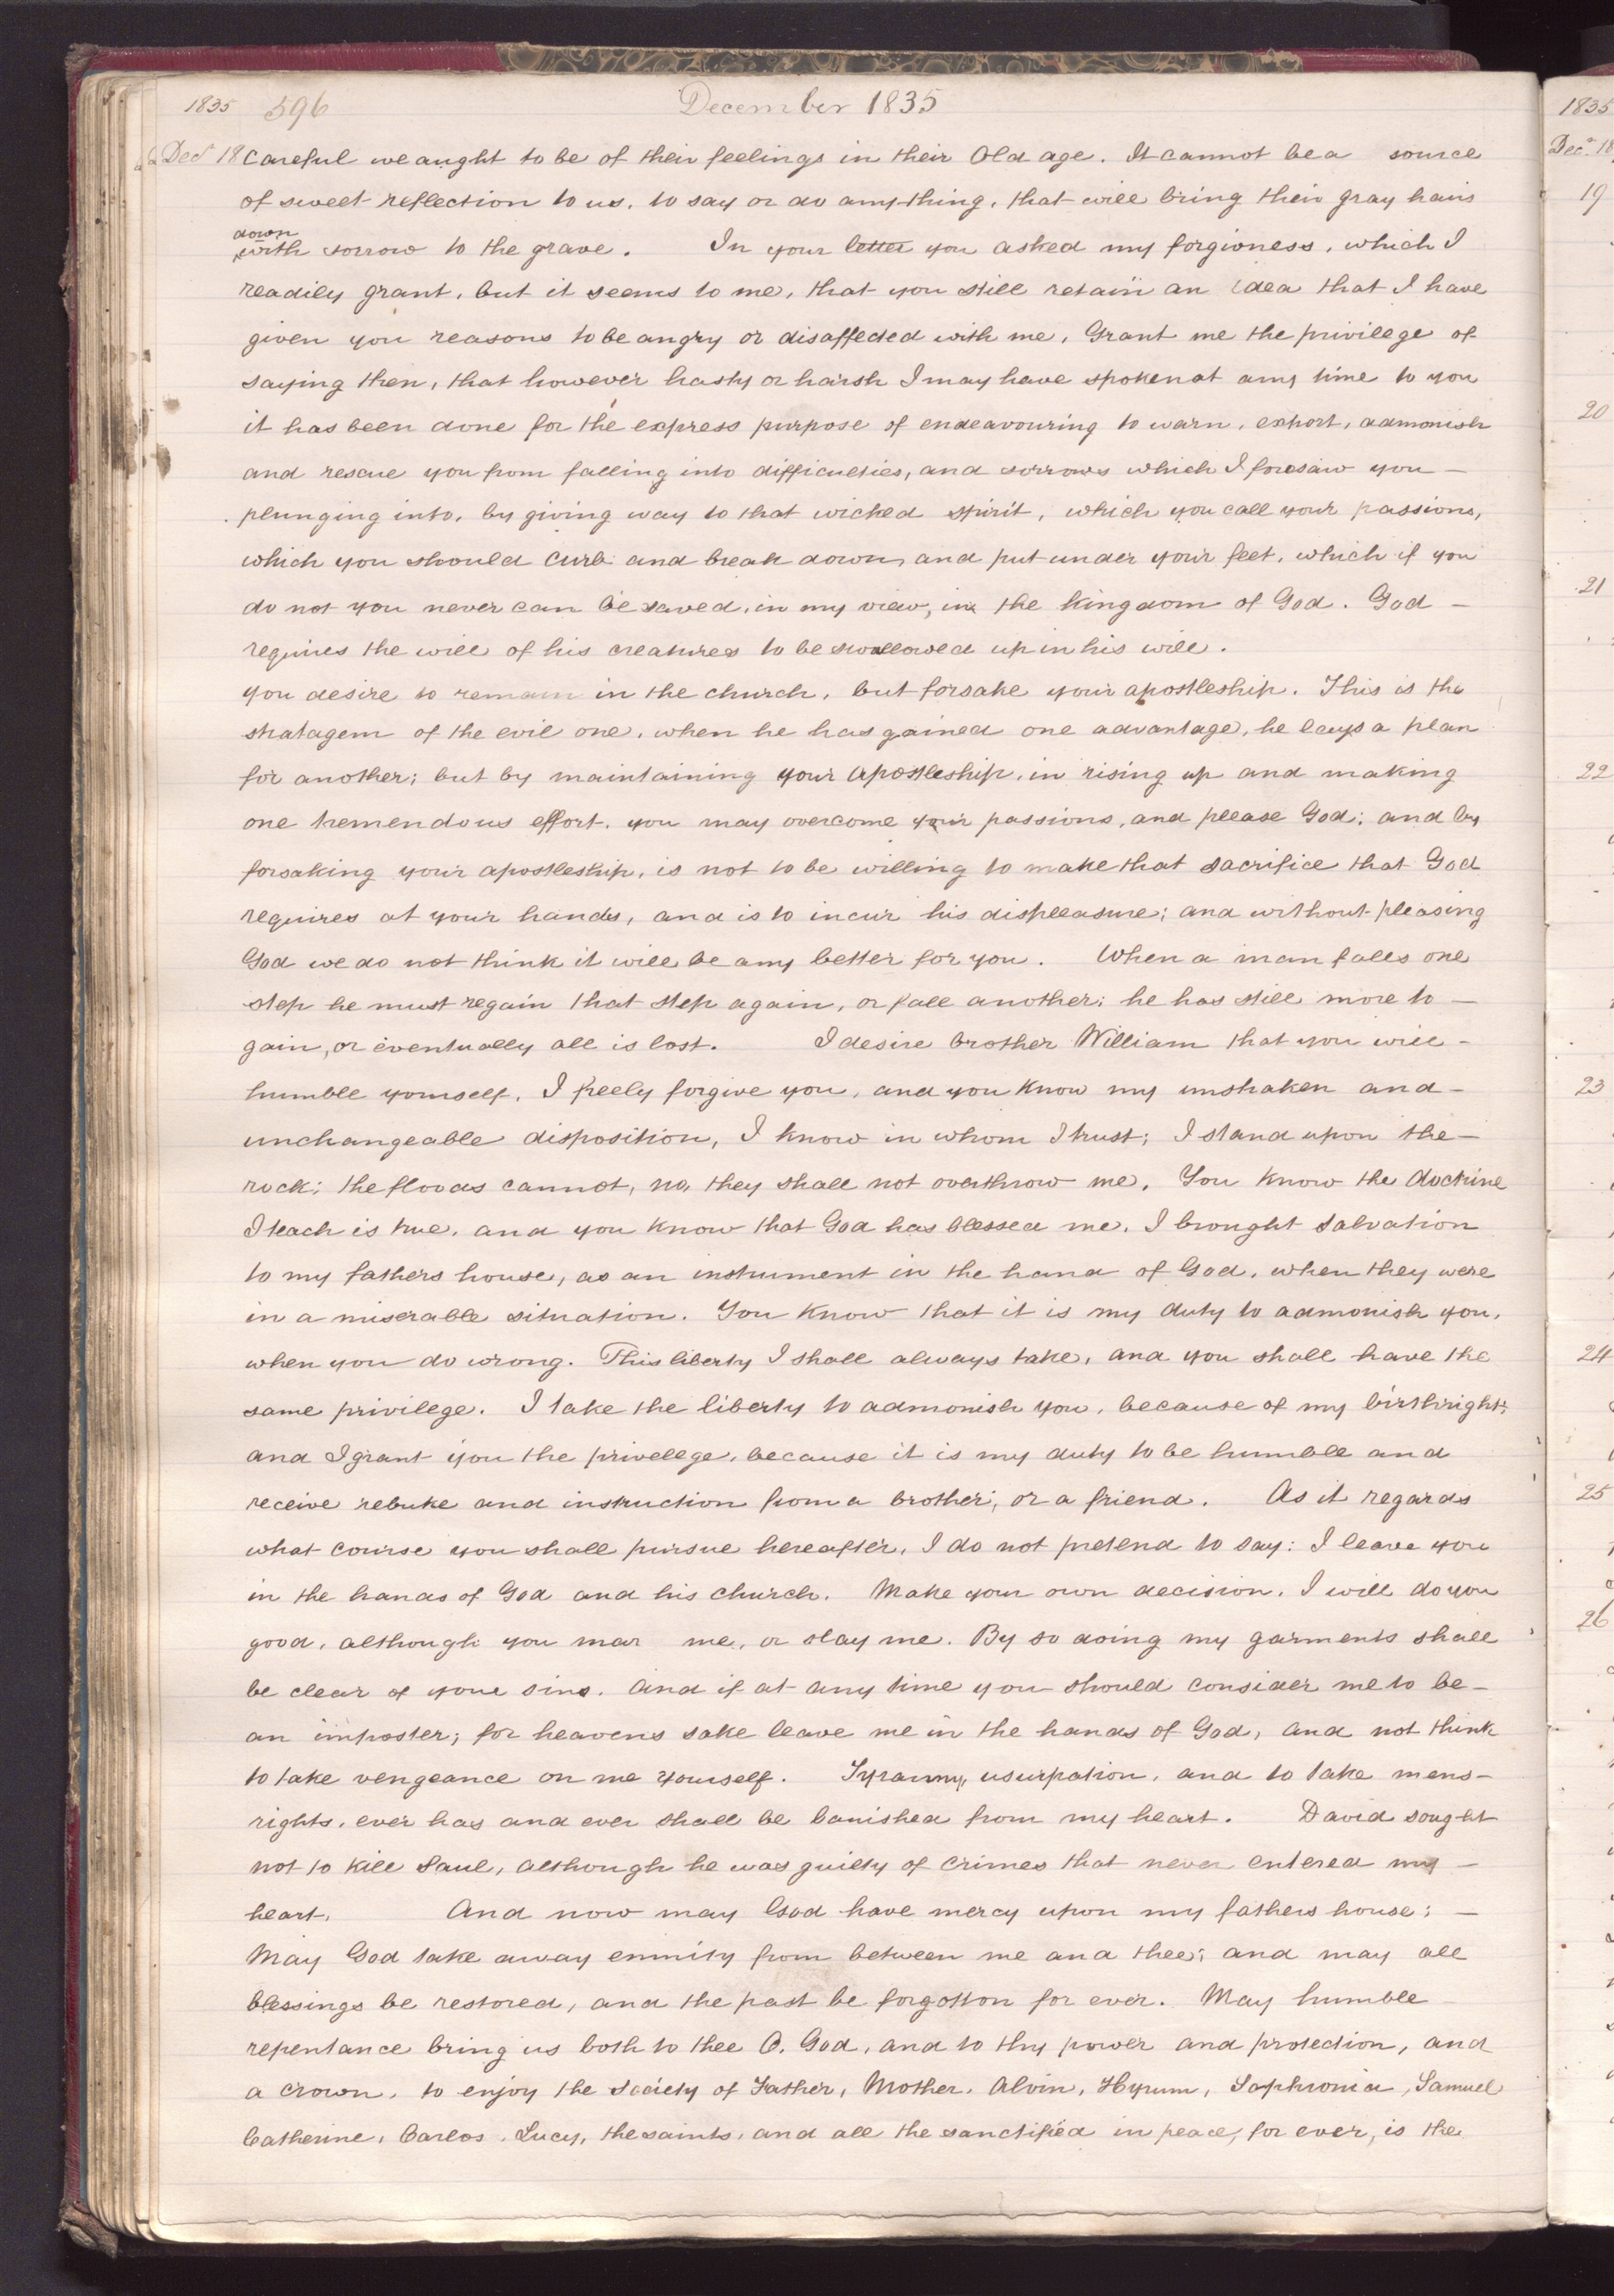 1835 596 December 1835
Decr 18 careful we aught to be of their feelings in their Old age. It cannot be a source
of sweet reflection to us, to say or do any thing, that will bring their gray hairs
down
with sorrow to the grave. In your letter you asked my forgivness, which I
readily grant, but it seems to me, that you still retain an idea that I have
given you reasons to be angry or disaffected with me, Grant me the privilege of
saying then, that however hasty or harsh I may have spoken at any time to you
it has been done for the express purpose of endeavouring to warn, exhort, admonish
and rescue you from falling into difficulties, and sorrows which I foresaw you –
plunging into, by giving way to that wicked spirit, which you call your passions,
which you should curb and break down, and put under your feet, which if you
do not you never can be saved, in my view, in the kingdom of God. God –
requires the will of his creatures to be swallowed up in his will.
You desire to remain in the church, but forsake your apostleship. This is the
stratagem of the evil one, when he has gained one advantage, he lays a plan
for another; but by maintaining your apostleship, in rising up and making
one tremendous effort, you may overcome your passions, and please God; and by
forsaking your apostleship, is not to be willing to make that sacrifice that God
requires at your hands, and is to incur his displeasure; and without pleasing
God we do not think it will be any better for you. When a man falls one
step he must regain that step again, or fall another; he has still more to –
gain, or eventually all is lost. I desire brother William that you will –
humble yourself, I freely forgive you, and you know my unshaken and –
unchangeable disposition, I know in whom I trust; I stand upon the –
rock; the floods cannot, no, they shall not overthrow me. You know the doctrine
I teach is true, and you know that God has blessed me. I brought salvation
to my fathers house, as an instrument in the hand of God, when they were
in a miserable situation. You know that it is my duty to admonish you,
when you do wrong. This liberty I shall always take, and you shall have the
same privilege. I take the liberty to admonish you, because of my birthright;
and I grant you the privelege, because it is my duty to be humble and
receive rebuke and instruction from a brother, or a friend. As it regards
what course you shall pursue hereafter, I do not pretend to say: I leave you
in the hands of God and his church. Make your own decision. I will do you
good, although you mar me, or slay me. By so doing my garments shall
be clear of your sins. And if at any time you should consider me to be –
an imposter; for heavens sake leave me in the hands of God, and not think
to take vengeance on me yourself. Tyranny, usurpation, and to take mens –
rights, ever has and ever shall be banished from my heart. David sought
not to kill Saul, although he was guilty of crimes that never entered my –
heart. And now may God have mercy upon my fathers house; –
May God take away enmity from between me and thee; and may all
blessings be restored, and the past be forgotton for ever. May humble –
repentance bring us both to thee O. God, and to thy power and protection, and
a crown, to enjoy the society of Father, Mother, Alvin, Hyrum, Sophronia, Samuel
Catherine, Carlos, Lucy, the saints, and all the sanctified in peace, for ever, is the
1835
Decr 18
19
20
21
22
23
24
25
26